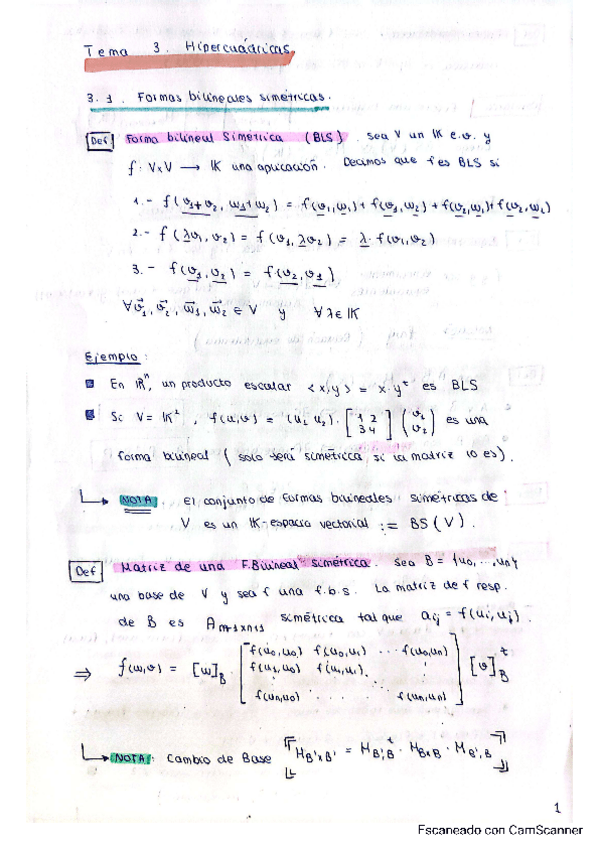 Tema 3. Hipercuádricas.
3.1. Formas bilineales simétricas.
Def Forma bilineal Simétrica (BLS). sea V un IK e.v. y
f: V×V → IK una aplicación. Decimos que f es BLS si
1.- f(v₁+v₂, w₁+w₂) = f(v₁,w₁)+f(v₁,w₂)+f(v₂,w₁)+f(v₂,w₂)
2.- f(λv₁,v₂) = f(v₁,λv₂) = λ·f(v₁,v₂)
3.- f(v₁,v₂) = f(v₂,v₁)
∀v⃗₁, v⃗₂, w⃗₁, w⃗₂ ∈ V y ∀λ∈IK
Ejemplo:
En IRⁿ, un producto escalar <x,y> = x·yᵗ es BLS
Si V=IK², f(u,v) = (u₁ u₂)·[1 2 / 3 4](v₁ / v₂) es una
forma bilineal (solo será simétrica si la matriz lo es).
NOTA: El conjunto de formas bilineales simétricas de
V es un IK-espacio vectorial := BS(V).
Def Matriz de una F.Bilineal simétrica. sea B={u₀,...,uₙ}
una base de V y sea f una f.b.s. La matriz de f resp.
de B es Aₙ₊₁ₓₙ₊₁ simétrica tal que aᵢⱼ = f(uᵢ,uⱼ).
⇒ f(w,v) = [w]_B · [f(u₀,u₀) f(u₀,u₁) ... f(u₀,uₙ) / f(u₁,u₀) f(u₁,u₁) ⋮ / ⋮ / f(uₙ,u₀) . . . . f(uₙ,uₙ)] [v]ᵗ_B
NOTA: Cambio de Base M_B'×B' = Mᵗ_B',B · M_B×B · M_B',B
1
Escaneado con CamScanner